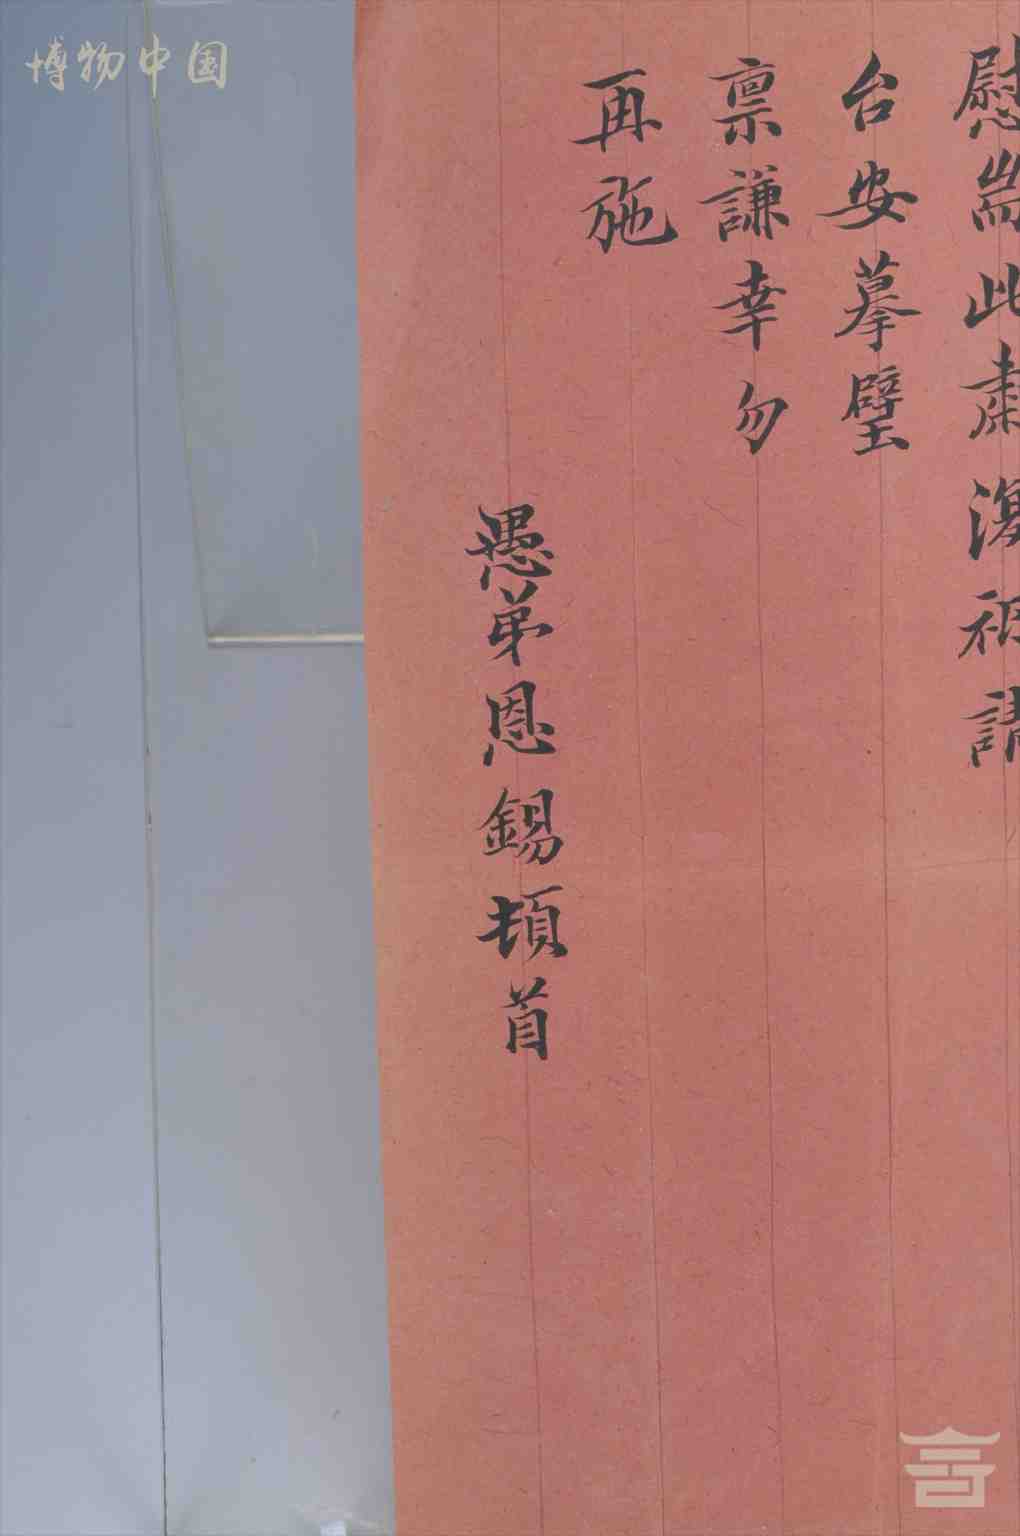 慰耑此肅復祗請
台安摹璧
禀謙幸勿
再施
愚弟恩錫頓首
博物中国